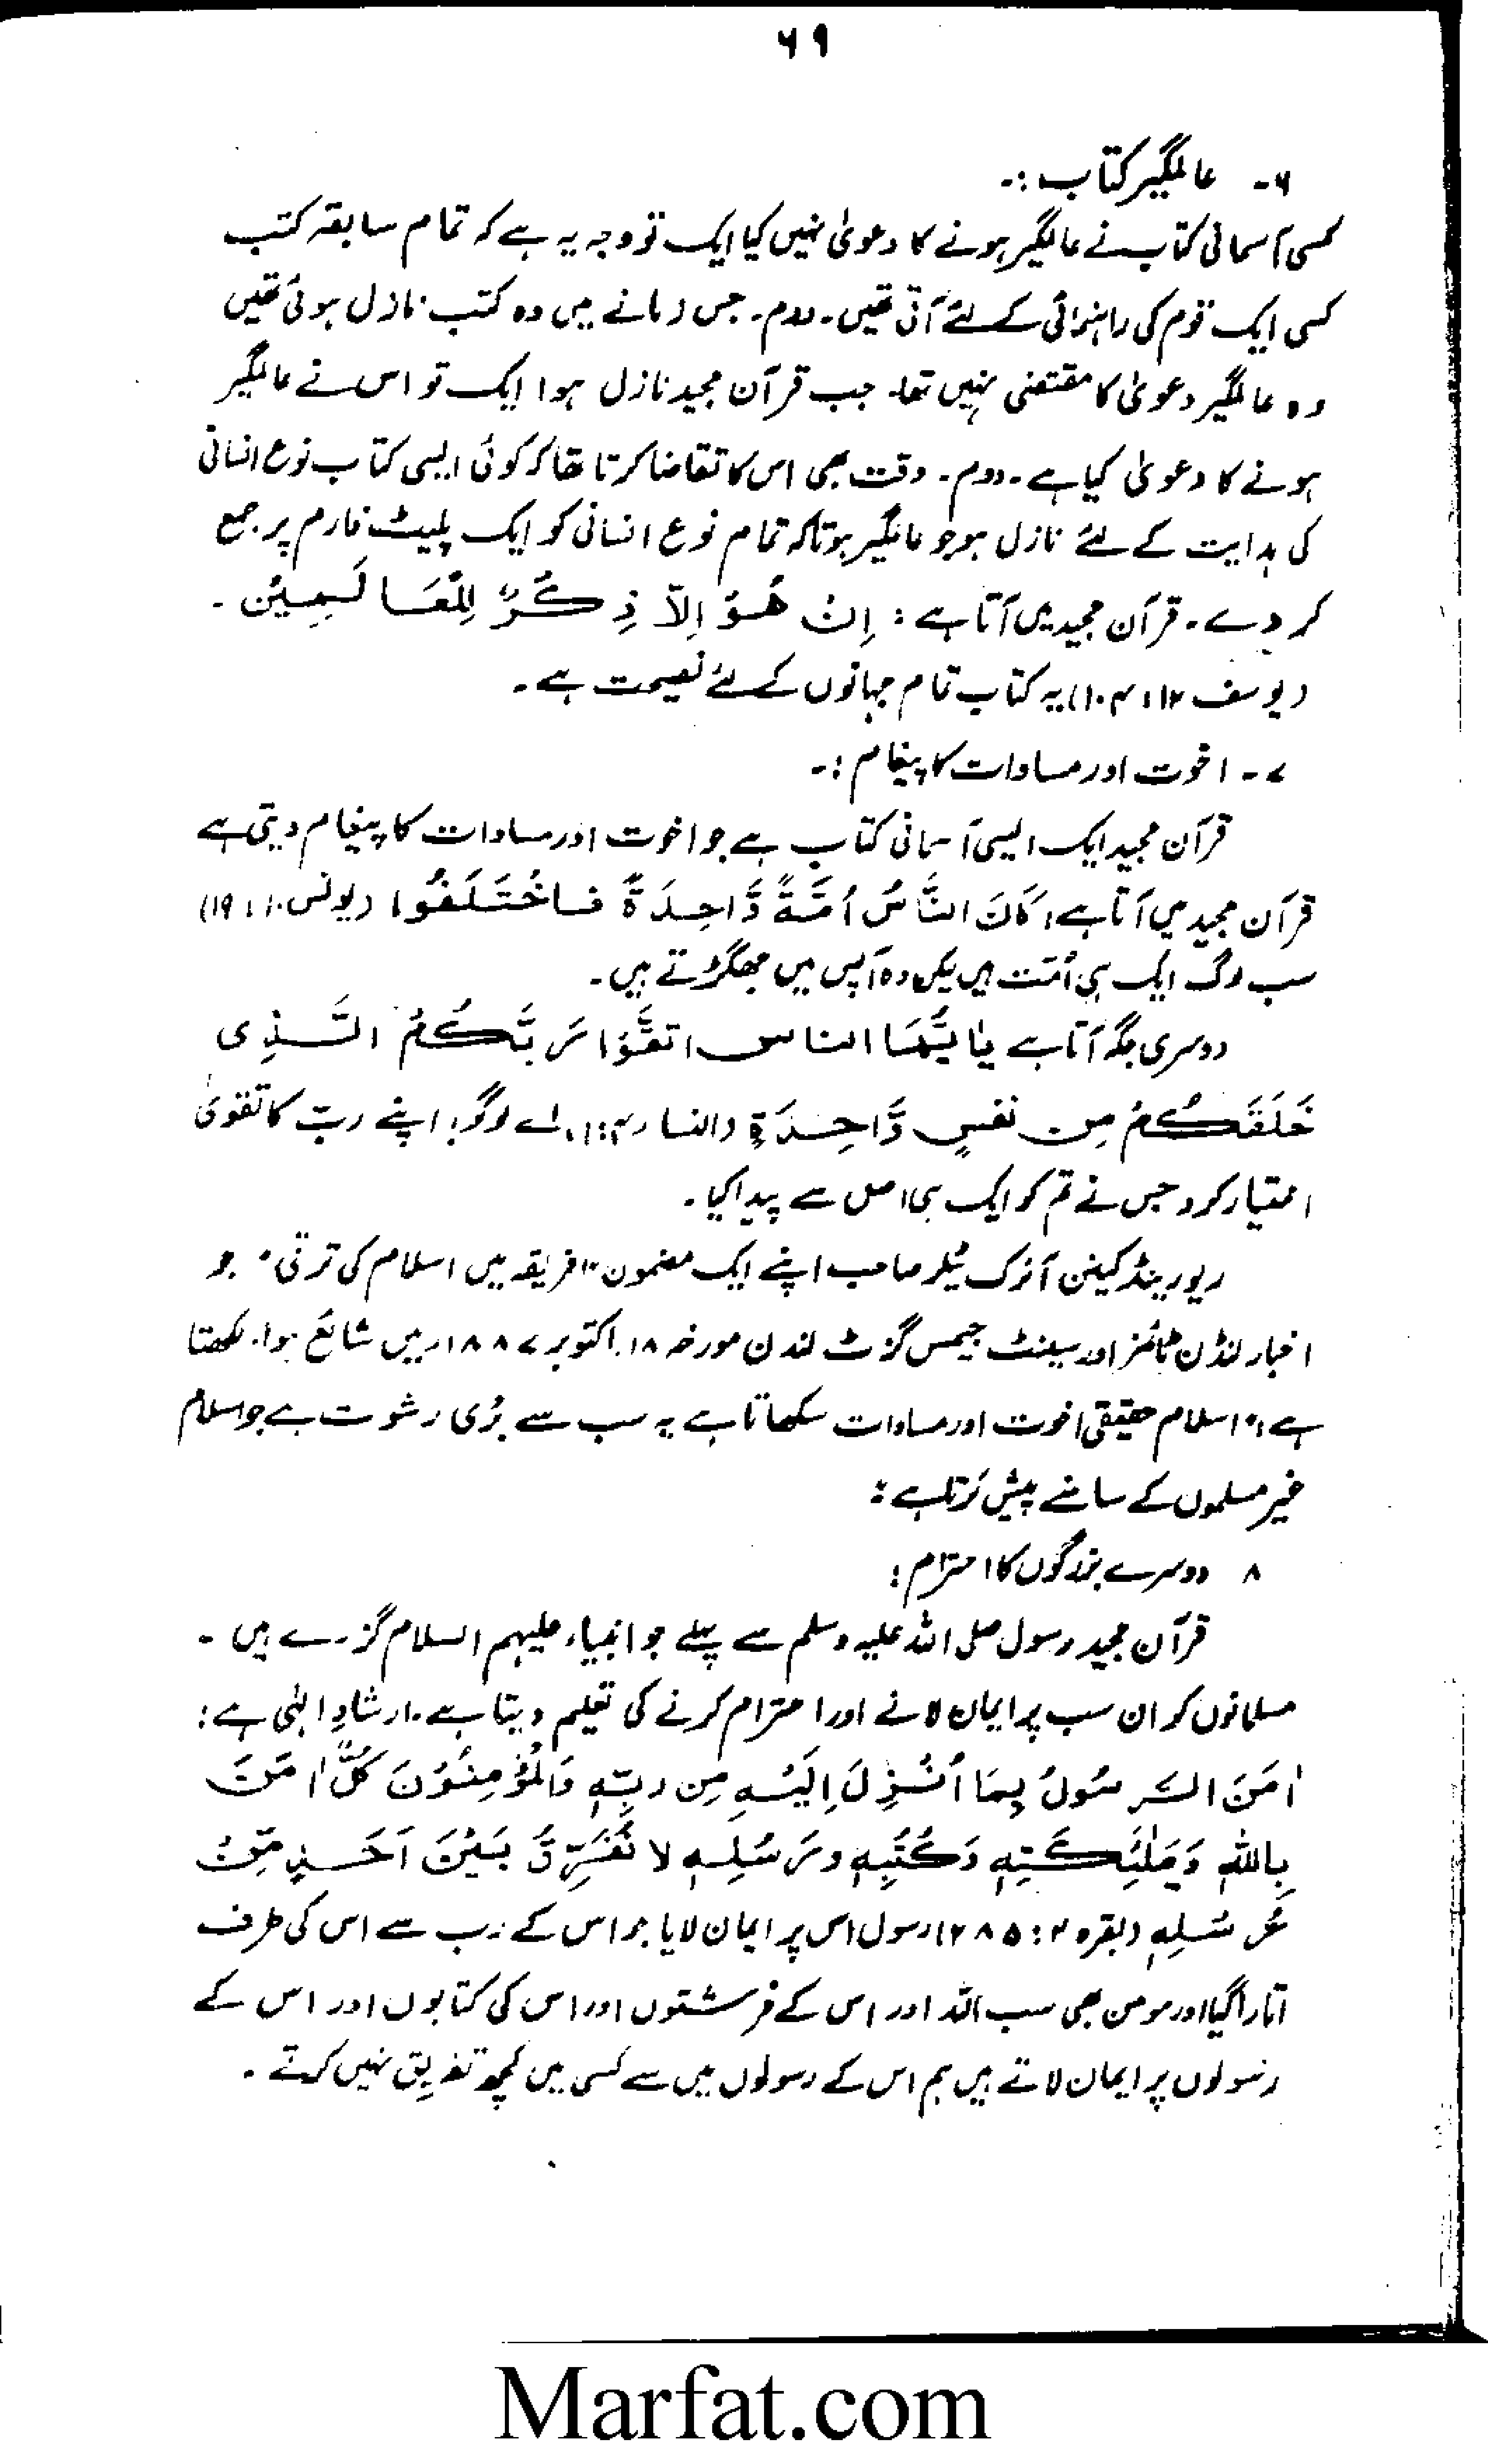 ۶۹
۶۔ عالمگیر کتاب :۔
کسی آسمانی کتاب نے عالمگیر ہونے کا دعویٰ نہیں کیا ایک تو وجہ یہ ہے کہ تمام سابقہ کتب
کسی ایک قوم کی راہنمائی کے لئے آتی تھیں۔ دوم۔ جس زمانے میں وہ کتب نازل ہوئی تھیں
وہ عالمگیر دعویٰ کا مقتضی نہیں تھا۔ جب قرآن مجید نازل ہوا ایک تو اس نے عالمگیر
ہونے کا دعویٰ کیا ہے۔ دوم۔ وقت بھی اس کا تقاضا کرتا تھا کہ کوئی ایسی کتاب نوع انسانی
کی ہدایت کے لئے نازل ہو جو عالمگیر ہو تاکہ تمام نوع انسانی کو ایک پلیٹ فارم پر جمع
کر دے۔ قرآن مجید میں آتا ہے : اِنْ هُوَ اِلاَّ ذِكْرٌ لِلْعَالَمِيْن ۔
(یوسف ۱۲ : ۱۰۴) یہ کتاب تمام جہانوں کے لئے نصیحت ہے۔
۷۔ اخوت اور مساوات کا پیغام :۔
قرآن مجید ایک ایسی آسمانی کتاب ہے جو اخوت اور مساوات کا پیغام دیتی ہے
قرآن مجید میں آتا ہے : كَانَ النَّاسُ اُمَّةً وَّاحِدَةً فَاخْتَلَفُوا (یونس ۱۰ : ۱۹)
سب لوگ ایک ہی اُمت ہیں لیکن وہ آپس میں جھگڑتے ہیں۔
دوسری جگہ آتا ہے يٰاَيُّهَا الناس اتقُوْا رَبَّكُمُ الَّذِی
خَلَقَكُمْ مِن نفسٍ وَّاحِدَةٍ (النساء ۴ : ۱) اے لوگو! اپنے ربّ کا تقویٰ
اختیار کرو جس نے تم کو ایک ہی اصل سے پیدا کیا۔
ریورینڈ کینن آئزک ٹیلر صاحب اپنے ایک مضمون "افریقہ میں اسلام کی ترقی" جو
اخبار لنڈن ٹائمز اور سینٹ جیمس گزٹ لندن مورخہ ۱۸ اکتوبر ۱۸۸۷ء میں شائع ہوا۔ لکھتا
ہے : "اسلام حقیقی اخوت اور مساوات سکھاتا ہے یہ سب سے بڑی رشوت ہے جو اسلام
غیر مسلموں کے سامنے پیش کرتا ہے :
۸ دوسرے بزرگوں کا احترام :
قرآن مجید رسول صلی اللہ علیہ وسلم سے پہلے جو انبیاء علیہم السلام گزرے ہیں ۔
مسلمانوں کو ان سب پر ایمان لانے اور احترام کرنے کی تعلیم دیتا ہے۔ ارشادِ الٰہی ہے :
اٰمَنَ الرَّسُولُ بِمَا اُنْزِلَ اِلَيْهِ مِن ربّهٖ وَالْمُؤْمِنُوْنَ كُلٌّ اٰمَنَ
بِاللّٰهِ وَمَلٰئِكَتِهٖ وَكُتُبِهٖ ورُسُلِهٖ لا نُفَرِّقُ بَيْنَ اَحَدٍ مِّنْ
رُّسُلِهٖ (بقرہ ۲ : ۲۸۵) رسول اس پر ایمان لایا جو اس کے رب سے اس کی طرف
اتارا گیا اور مومن بھی سب اللہ اور اس کے فرشتوں اور اس کی کتابوں اور اس کے
رسولوں پر ایمان لاتے ہیں ہم اس کے رسولوں میں سے کسی میں کچھ تفریق نہیں کرتے ۔
Marfat.com